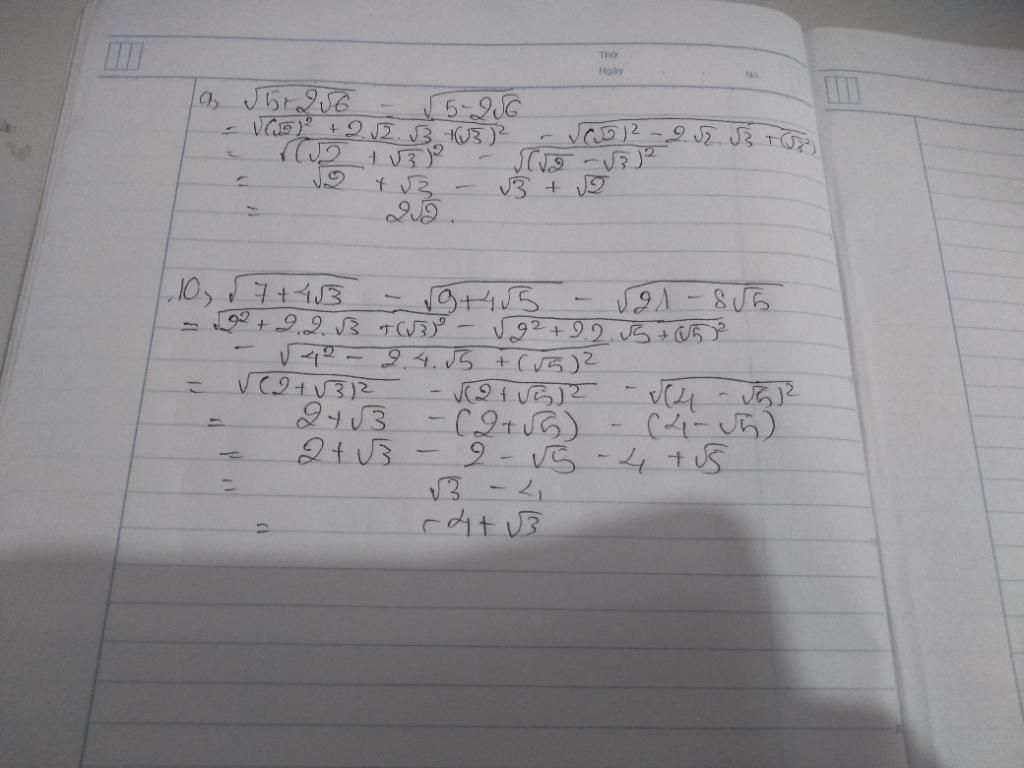 Thứ
Ngày . . No.
9, √(5+2√6) - √(5-2√6)
= √((√2)² + 2√2.√3 + (√3)²) - √((√2)² - 2.√2.√3 + (√3²)
= √((√2 + √3)²) - √((√2 - √3)²)
= √2 + √3 - √3 + √2
= 2√2.
10, √(7+4√3) - √(9+4√5) - √(21 - 8√5)
= √(2² + 2.2.√3 + (√3)²) - √(2² + 2.2.√5 + (√5)²)
- √(4² - 2.4.√5 + (√5)²)
= √((2+√3)²) - √((2+√5)²) - √((4 - √5)²)
= 2+√3 - (2+√5) - (4-√5)
= 2+√3 - 2 - √5 - 4 + √5
= √3 - 4
= -4+√3